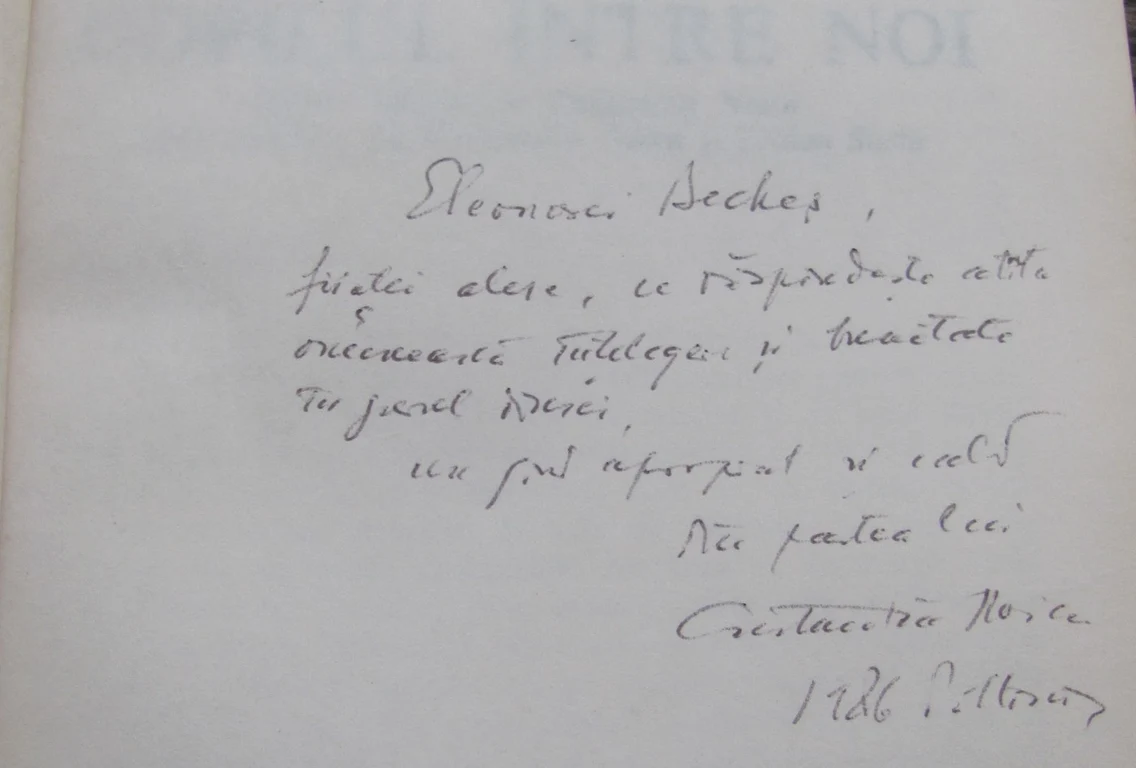 INTRE NOI
Eleonorei
ființei alese, ce răspîndește atîta
omenească înțelegere și bunătate
în jurul
un gînd apropiat și cald
din partea lui
Constantin Noica
1986 Păltiniș